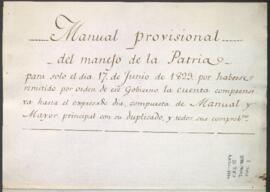 Manual provisional
del manejo de la Patria
para solo el dia 17 de Junio de 1823. por haberse
remitido por orden de este Gobierno la cuenta comprensi
va hasta el expresado dia, compuesta de Manual y
Mayor principal con su duplicado, y todos sus comprob.tes